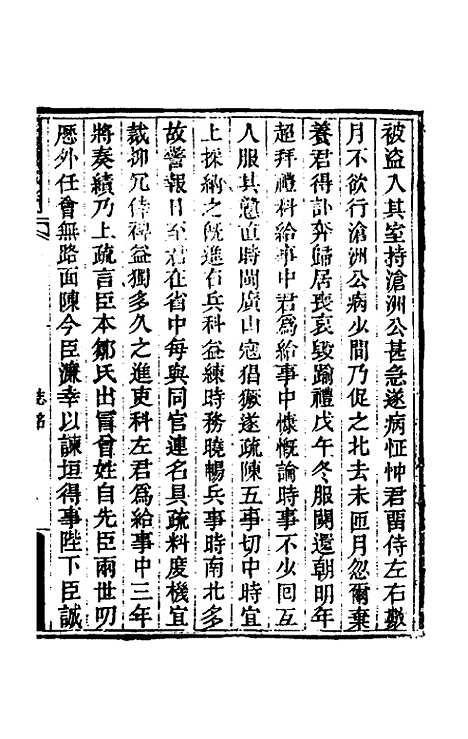 被盜入其室持滄洲公甚急遂病怔忡君畱侍左右數
月不欲行滄洲公病少間乃促之北去未匝月忽爾棄
養君得訃奔歸居喪哀毀踰禮戊午冬服闋還朝明年
超拜禮科給事中君爲給事中慷慨論時事不少回互
人服其戇直時閩廣山寇猖獗遂疏陳五事切中時宜
上採納之旣進右兵科益練時務曉暢兵事時南北多
故警報日至君在省中每與同官連名具疏料度機宜
裁抑冗倖裨益獨多久之進吏科左君爲給事中三年
將奏績乃上疏言臣本鄒氏出冒曾姓自先臣兩世叨
歷外任會無路面陳今臣濂幸以諫垣得事陛下臣誠
誌銘